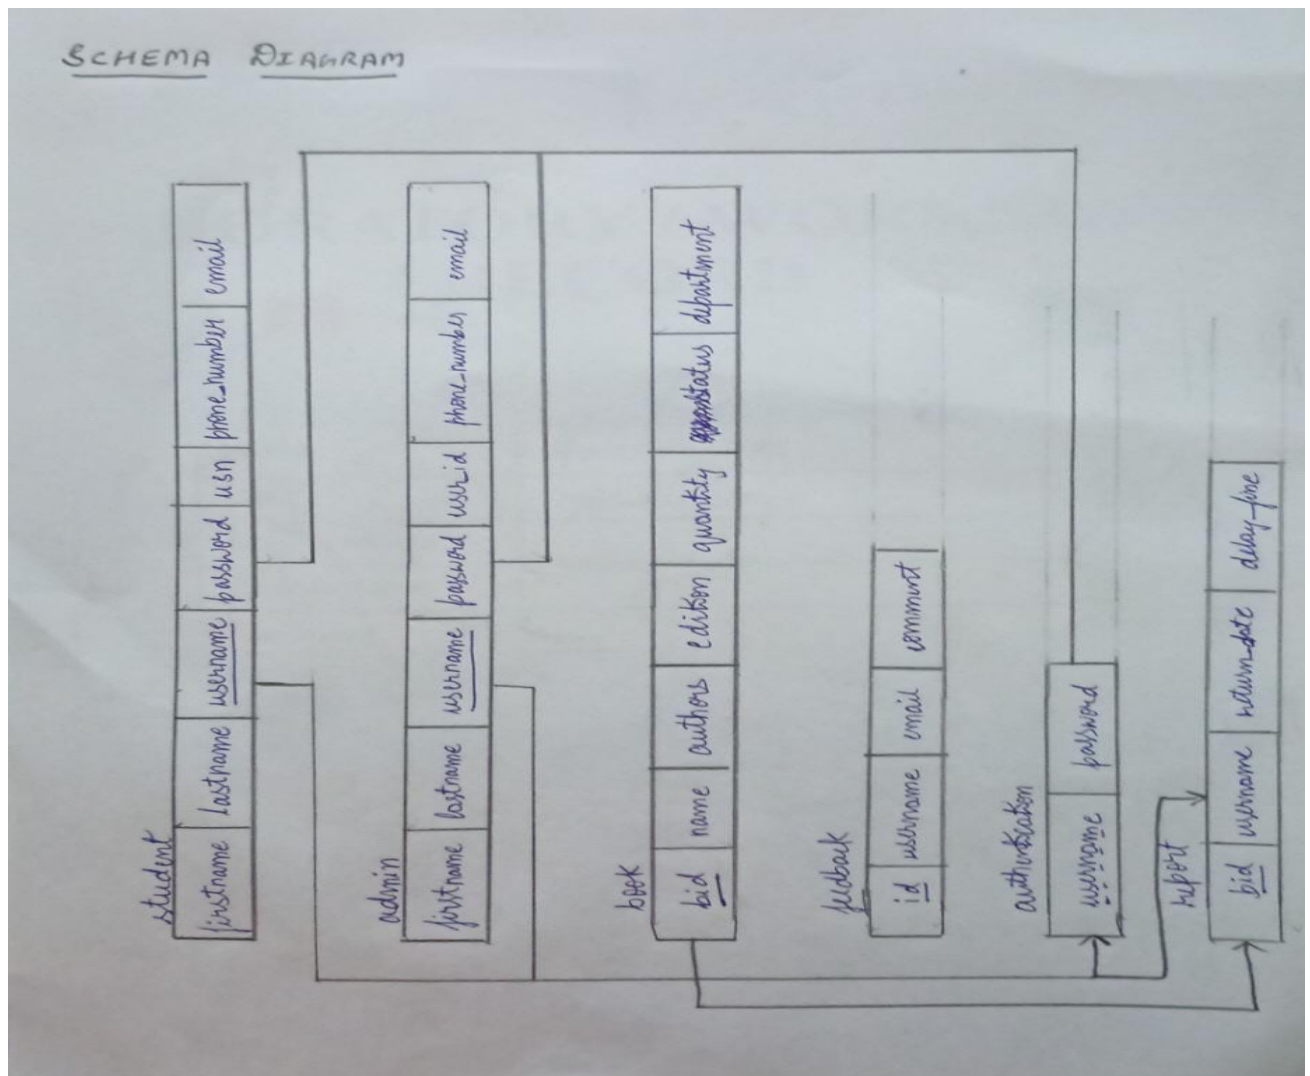 SCHEMA DIAGRAM
student
firstname lastname username password usn phone_number email
admin
firstname lastname username password user_id phone_number email
book
bid name authors edition quantity status department
feedback
id username email comment
authentication
username password
report
bid username return_date delay_fine